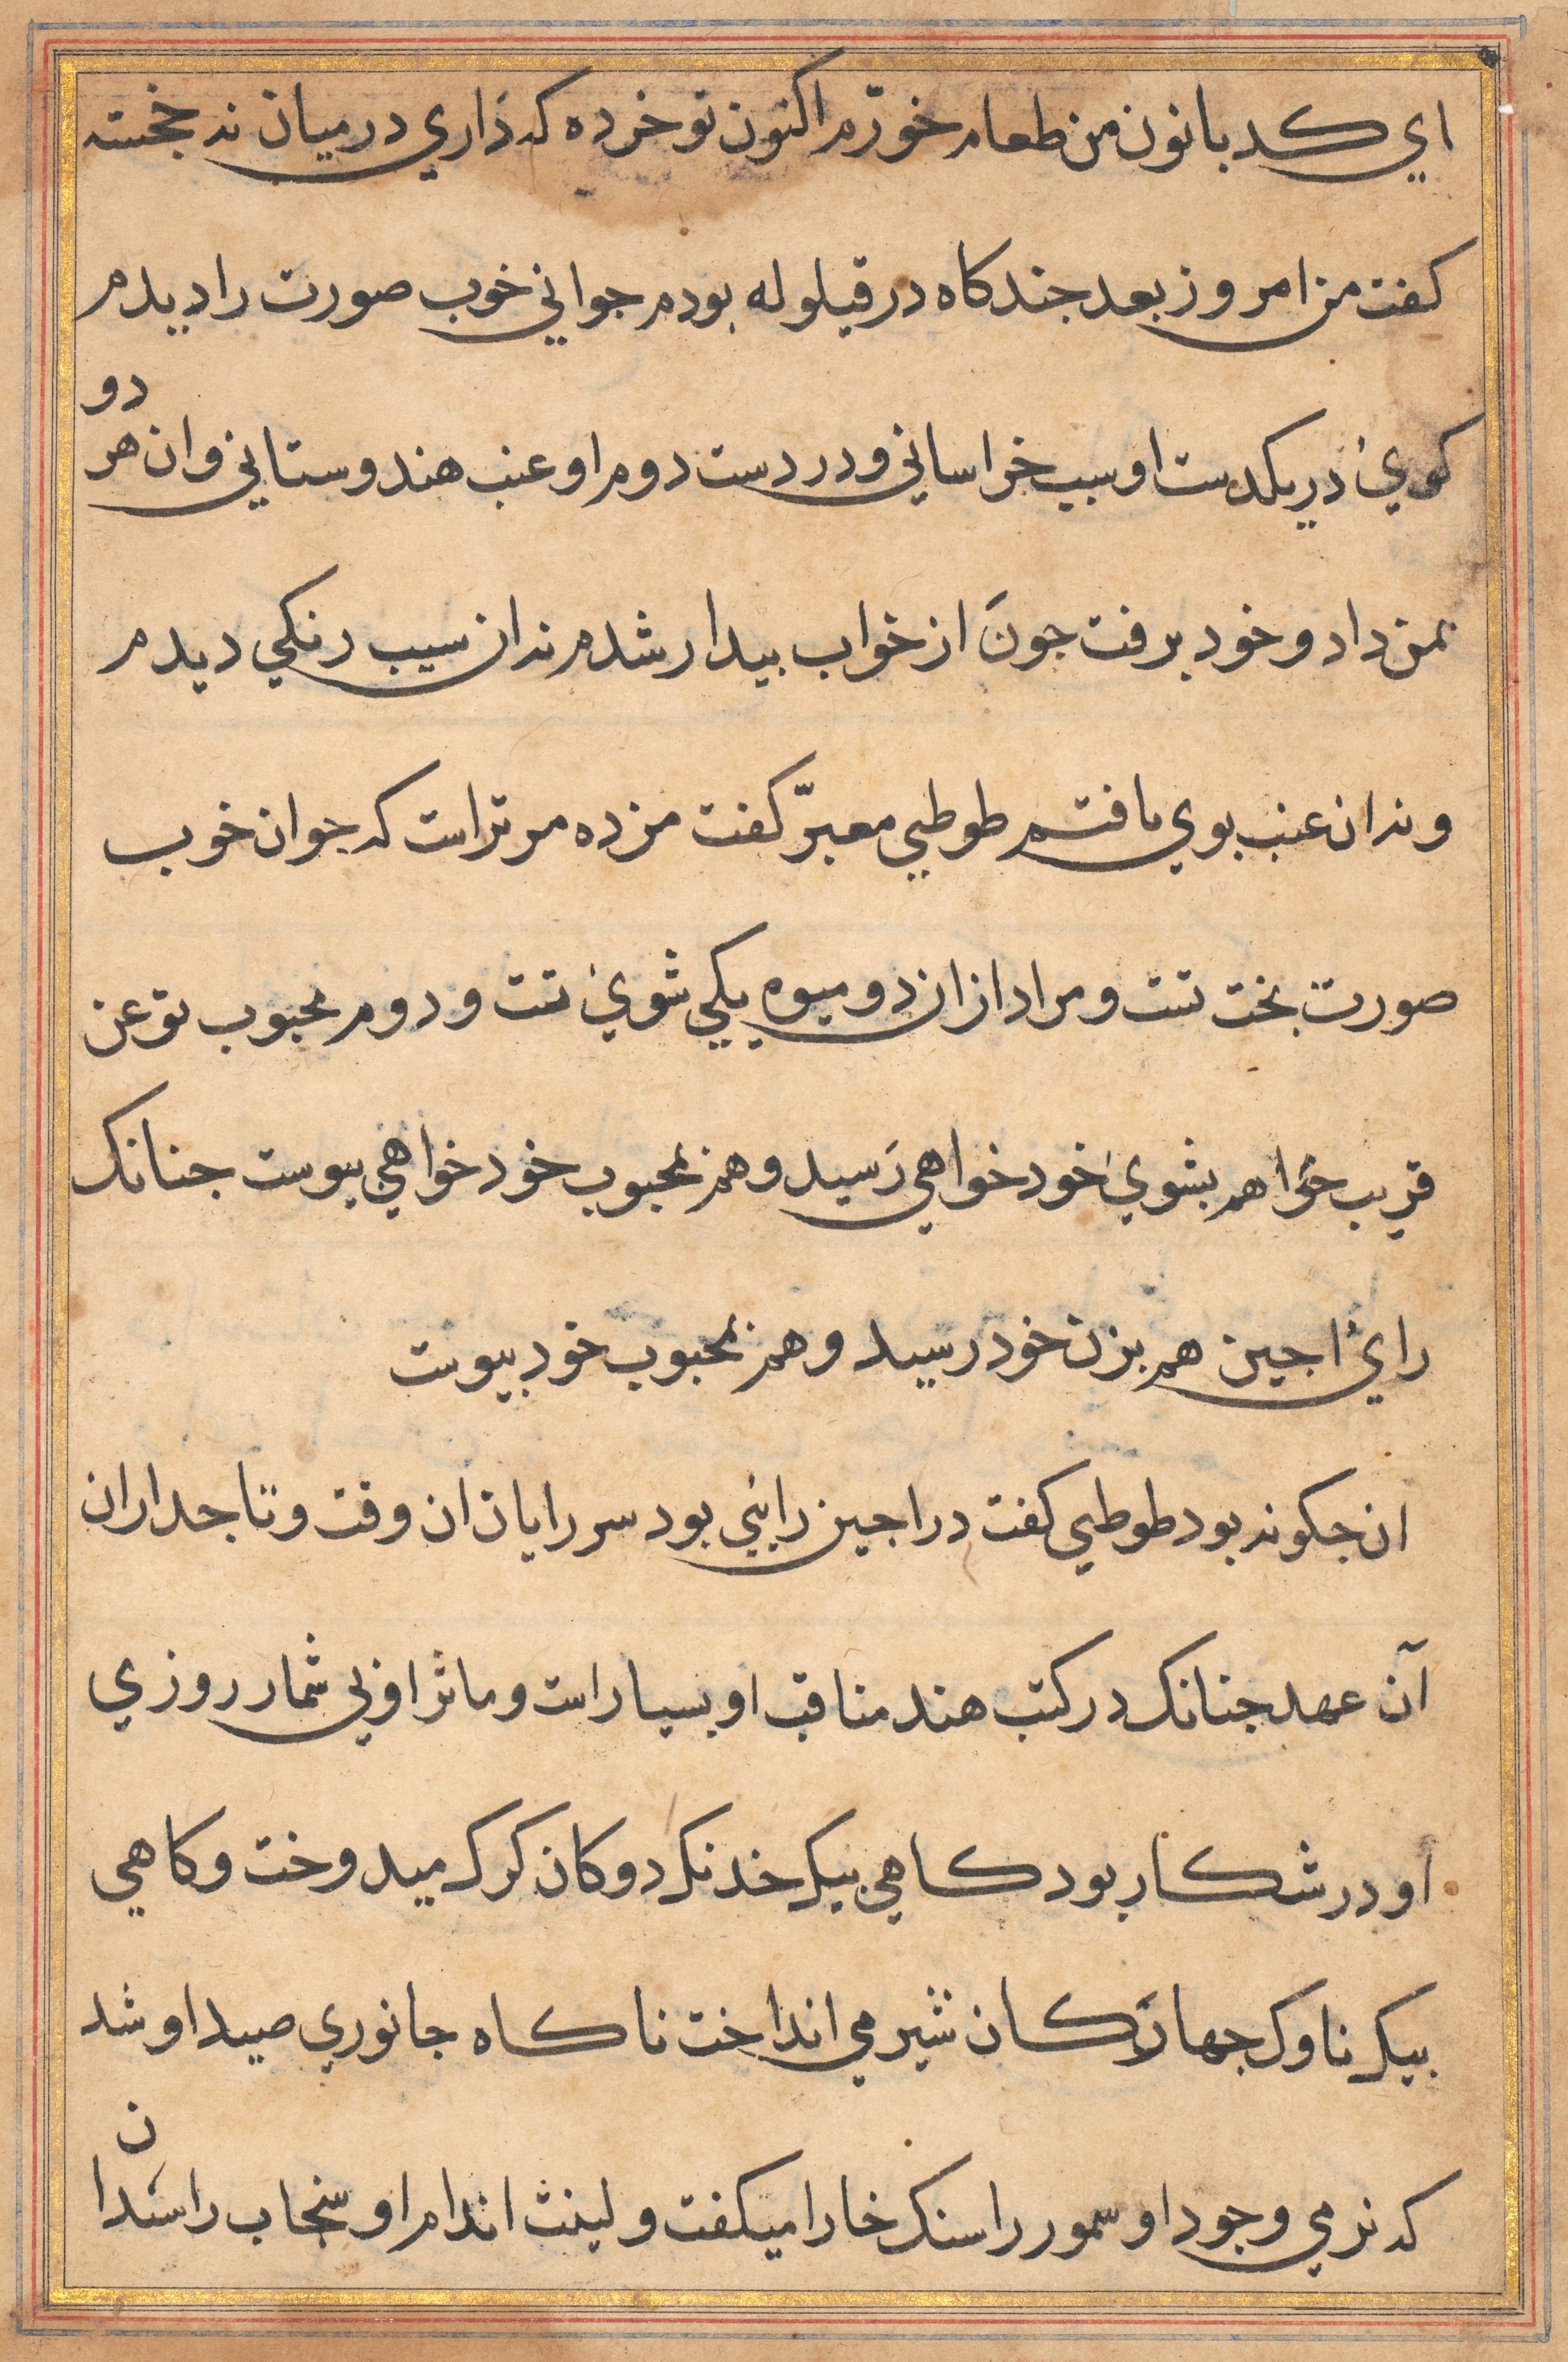 اي كدبانون من طعام خورّم اكنون تو خرده كه داري درميان نه خجسته
كفت من امروز بعد جندكاه در قيلوله بودم جواني خوب صورت را ديدم
كويئ در يكدست او سيب خراساني و در دست دوم او عنب هندوستاني و ان هر دو
بمن داد و خود برفت جونَ از خواب بيدار شدم نه ازان سيب رنكي ديدم
و نه ازان عنب بوي يافتم طوطيي معبرّ كفت مزده مر تراست كه جوان خوب
صورت بخت تست و مراد ازان دو ميوه يكي شويئ تست و دوم محبوب تو عن
قريب خَواهم بشويئ خود خواهي رَسيد و هم بمحبوب خود خواهي بيوست جنانك
رايئ اجين هم بزن خود رسيد و هم بمحبوب خود بيوست
ان جكونه بود طوطيي كفت در اجين رايئي بود سر رايان ان وقت و تاجداران
آن عهد جنانك در كتب هند مناقب او بسيار است و ماثر او بي شمار روزي
او در شكار بود كاهي بيك خدنك دوكان كرك ميدوخت و كاهي
بيك ناوك جهاركَان شير مي انداخت ناكاه جانوري صيد او شد
كه نرمي وجود او سمور را سنك خارا ميكفت و لينت اندام او سنجاب را سندان